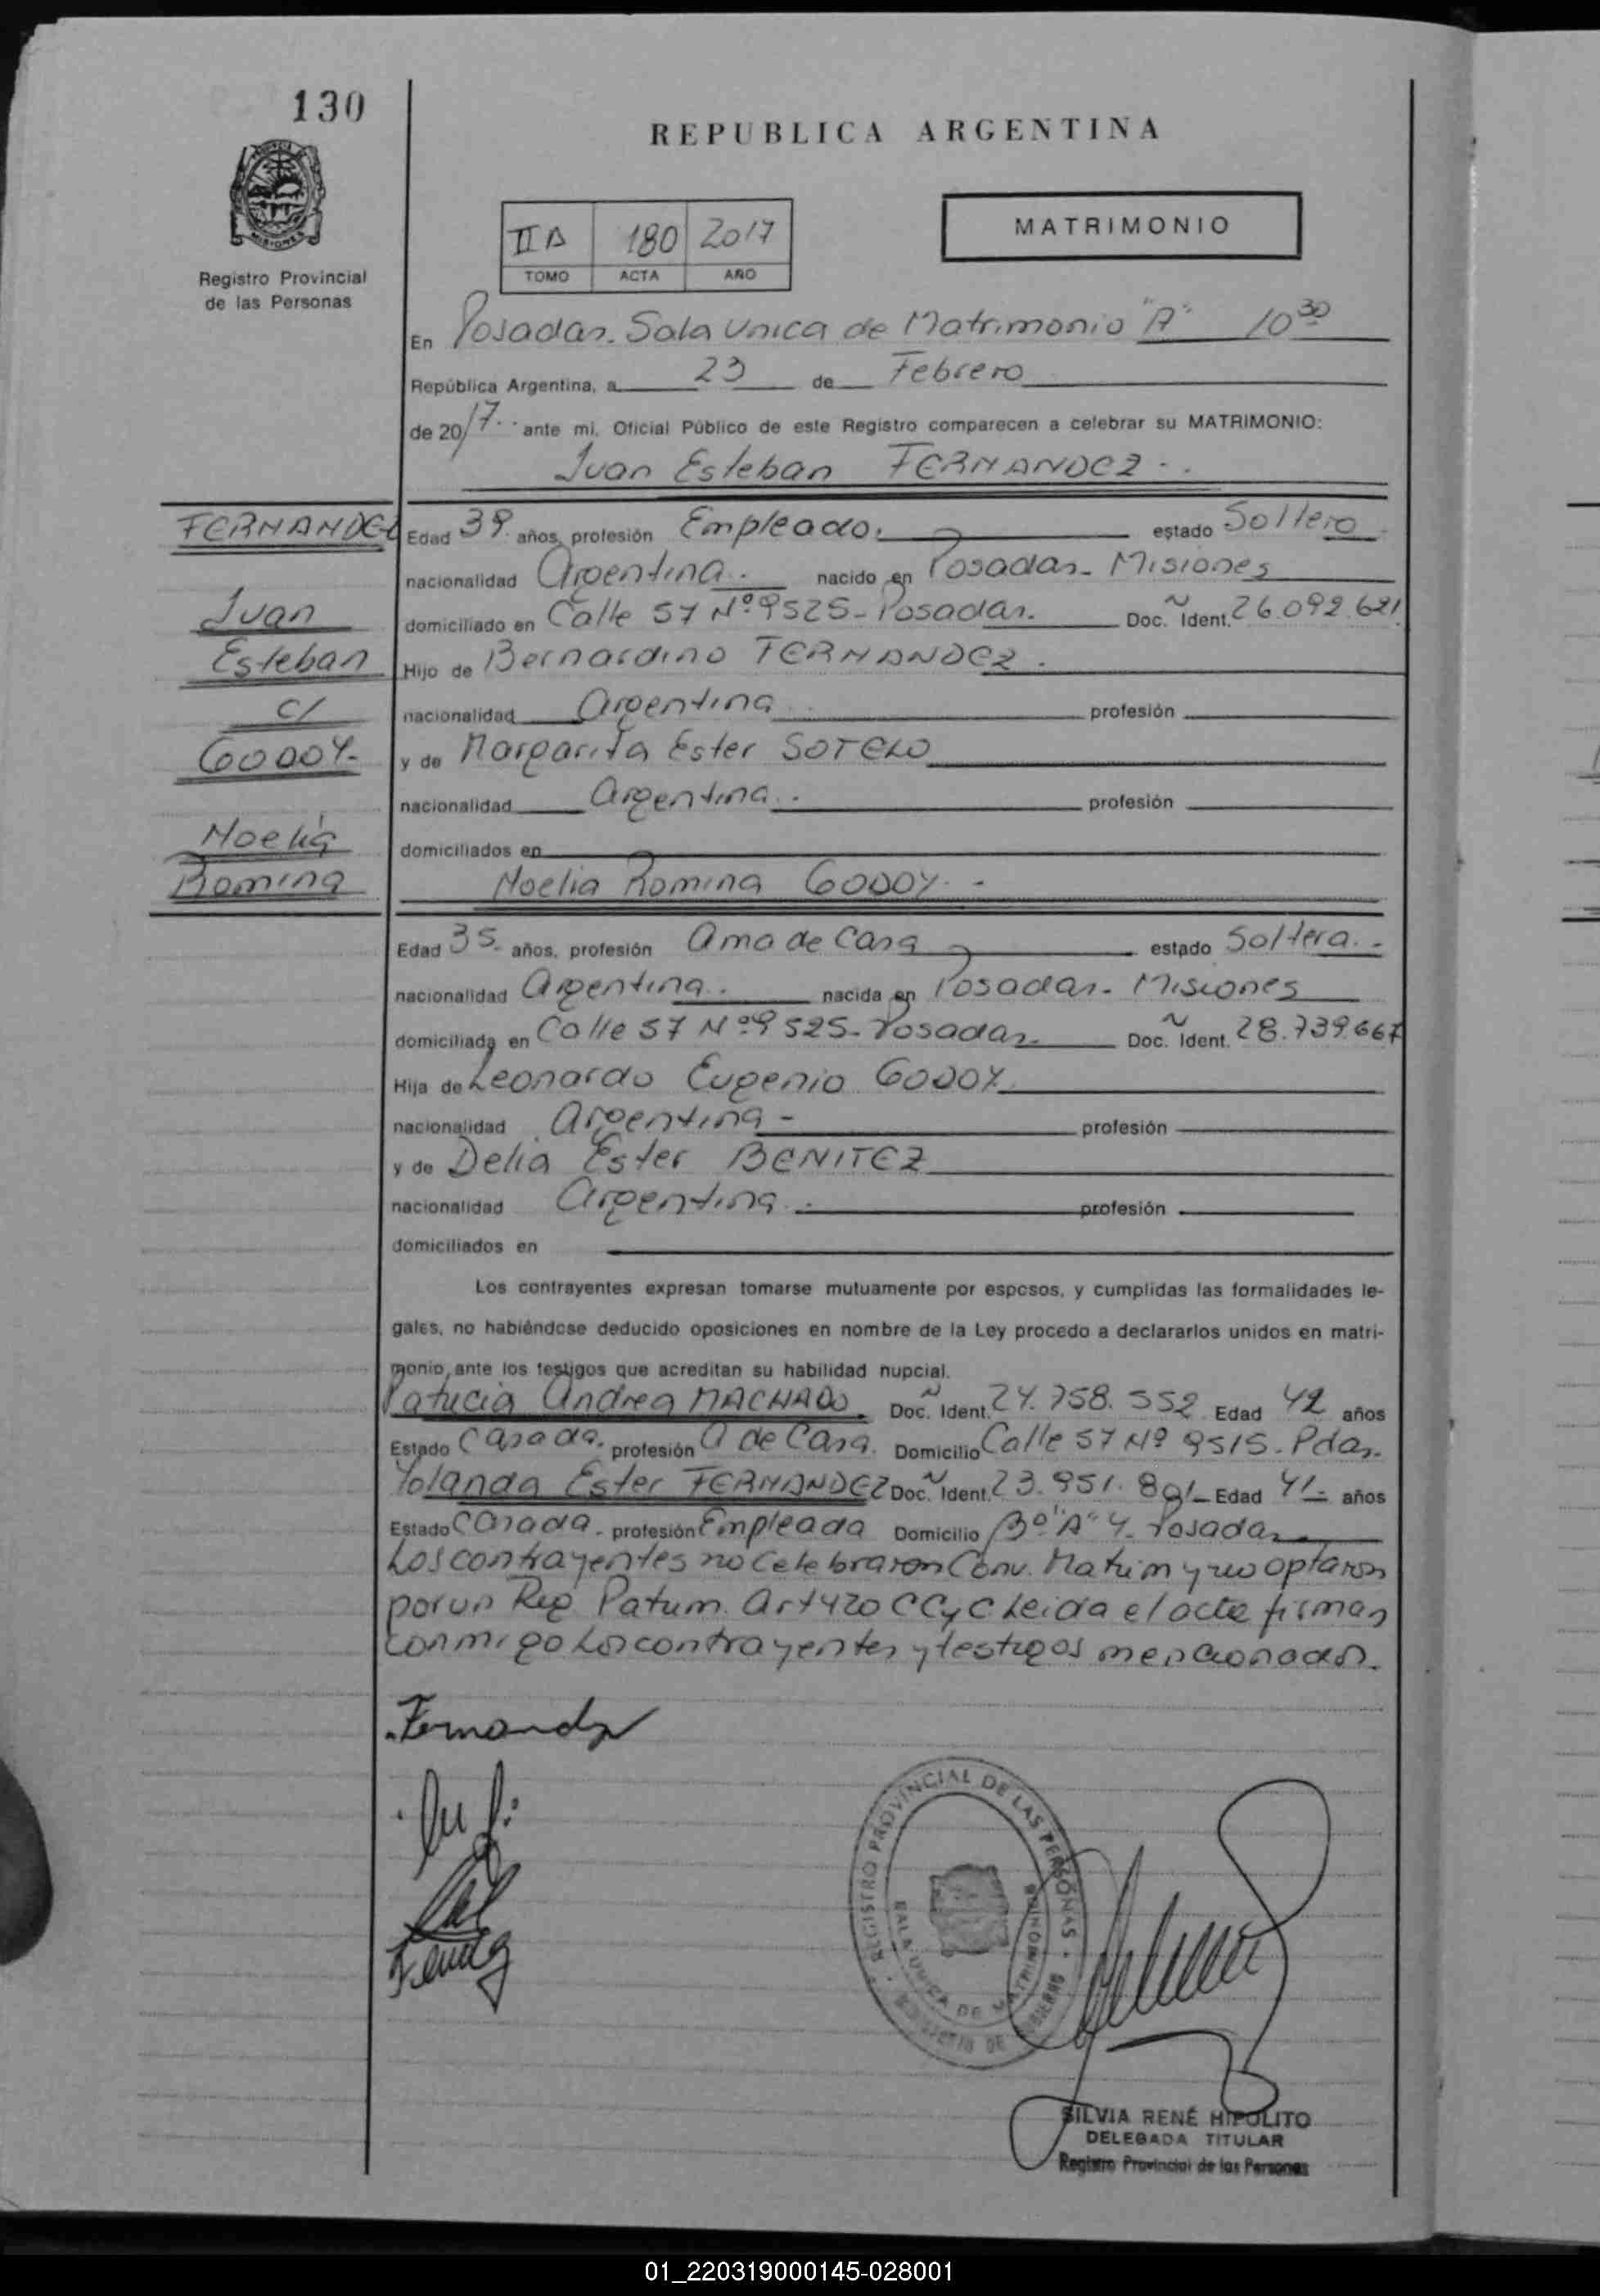 130
REPUBLICA ARGENTINA
MISIONES
Registro Provincial
de las Personas
II A 180 2017
TOMO ACTA AÑO
MATRIMONIO
En Posadas. Sala Unica de Matrimonio "A" 10 30
República Argentina, a 23 de Febrero
de 2017.- ante mi, Oficial Público de este Registro comparecen a celebrar su MATRIMONIO:
Juan Esteban FERNANDEZ.-
FERNANDEZ
Juan
Esteban
C/
GODOY.-
Noelia
Romina
Edad 39 años, profesión Empleado. estado Soltero
nacionalidad Argentina. nacido en Posadas- Misiones
domiciliado en Calle 57 Nº 9525- Posadas. Doc. Ident. 26.092.621
Hijo de Bernardino FERNANDEZ.
nacionalidad Argentina. profesión
y de Margarita Ester SOTELO
nacionalidad Argentina. profesión
domiciliados en
Noelia Romina GODOY.-
Edad 35 años, profesión Ama de Casa estado Soltera.-
nacionalidad Argentina. nacida en Posadas- Misiones
domiciliada en Calle 57 Nº 9525- Posadas. Doc. Ident. 28.739.667
Hija de Leonardo Eugenio GODOY
nacionalidad Argentina- profesión
y de Delia Ester BENITEZ
nacionalidad Argentina. profesión
domiciliados en
Los contrayentes expresan tomarse mutuamente por esposos, y cumplidas las formalidades le-
gales, no habiéndose deducido oposiciones en nombre de la Ley procedo a declararlos unidos en matri-
monio ante los testigos que acreditan su habilidad nupcial.
Patricia Andrea MACHADO. Doc. Ident. 24.758.552 Edad 42 años
Estado Casada. profesión A de Casa. Domicilio Calle 57 Nº 9515. Pdas.
Yolanda Ester FERNANDEZ Doc. Ident. 23.951.891 Edad 41- años
Estado Casada. profesión Empleada Domicilio Bº "A" 4- Posadas
Los contrayentes no Celebraron Conv. Matrim y no optaron
por un Reg Patrim. Art 420 CCyC Leida el acta firman
conmigo Los contrayentes y testigos mencionados.
Fernandez
REGISTRO PROVINCIAL DE LAS PERSONAS
SALA UNICA DE MATRIMONIO
MINISTERIO DE GOBIERNO
SILVIA RENÉ HIPOLITO
DELEGADA TITULAR
Registro Provincial de las Personas
01_220319000145-028001